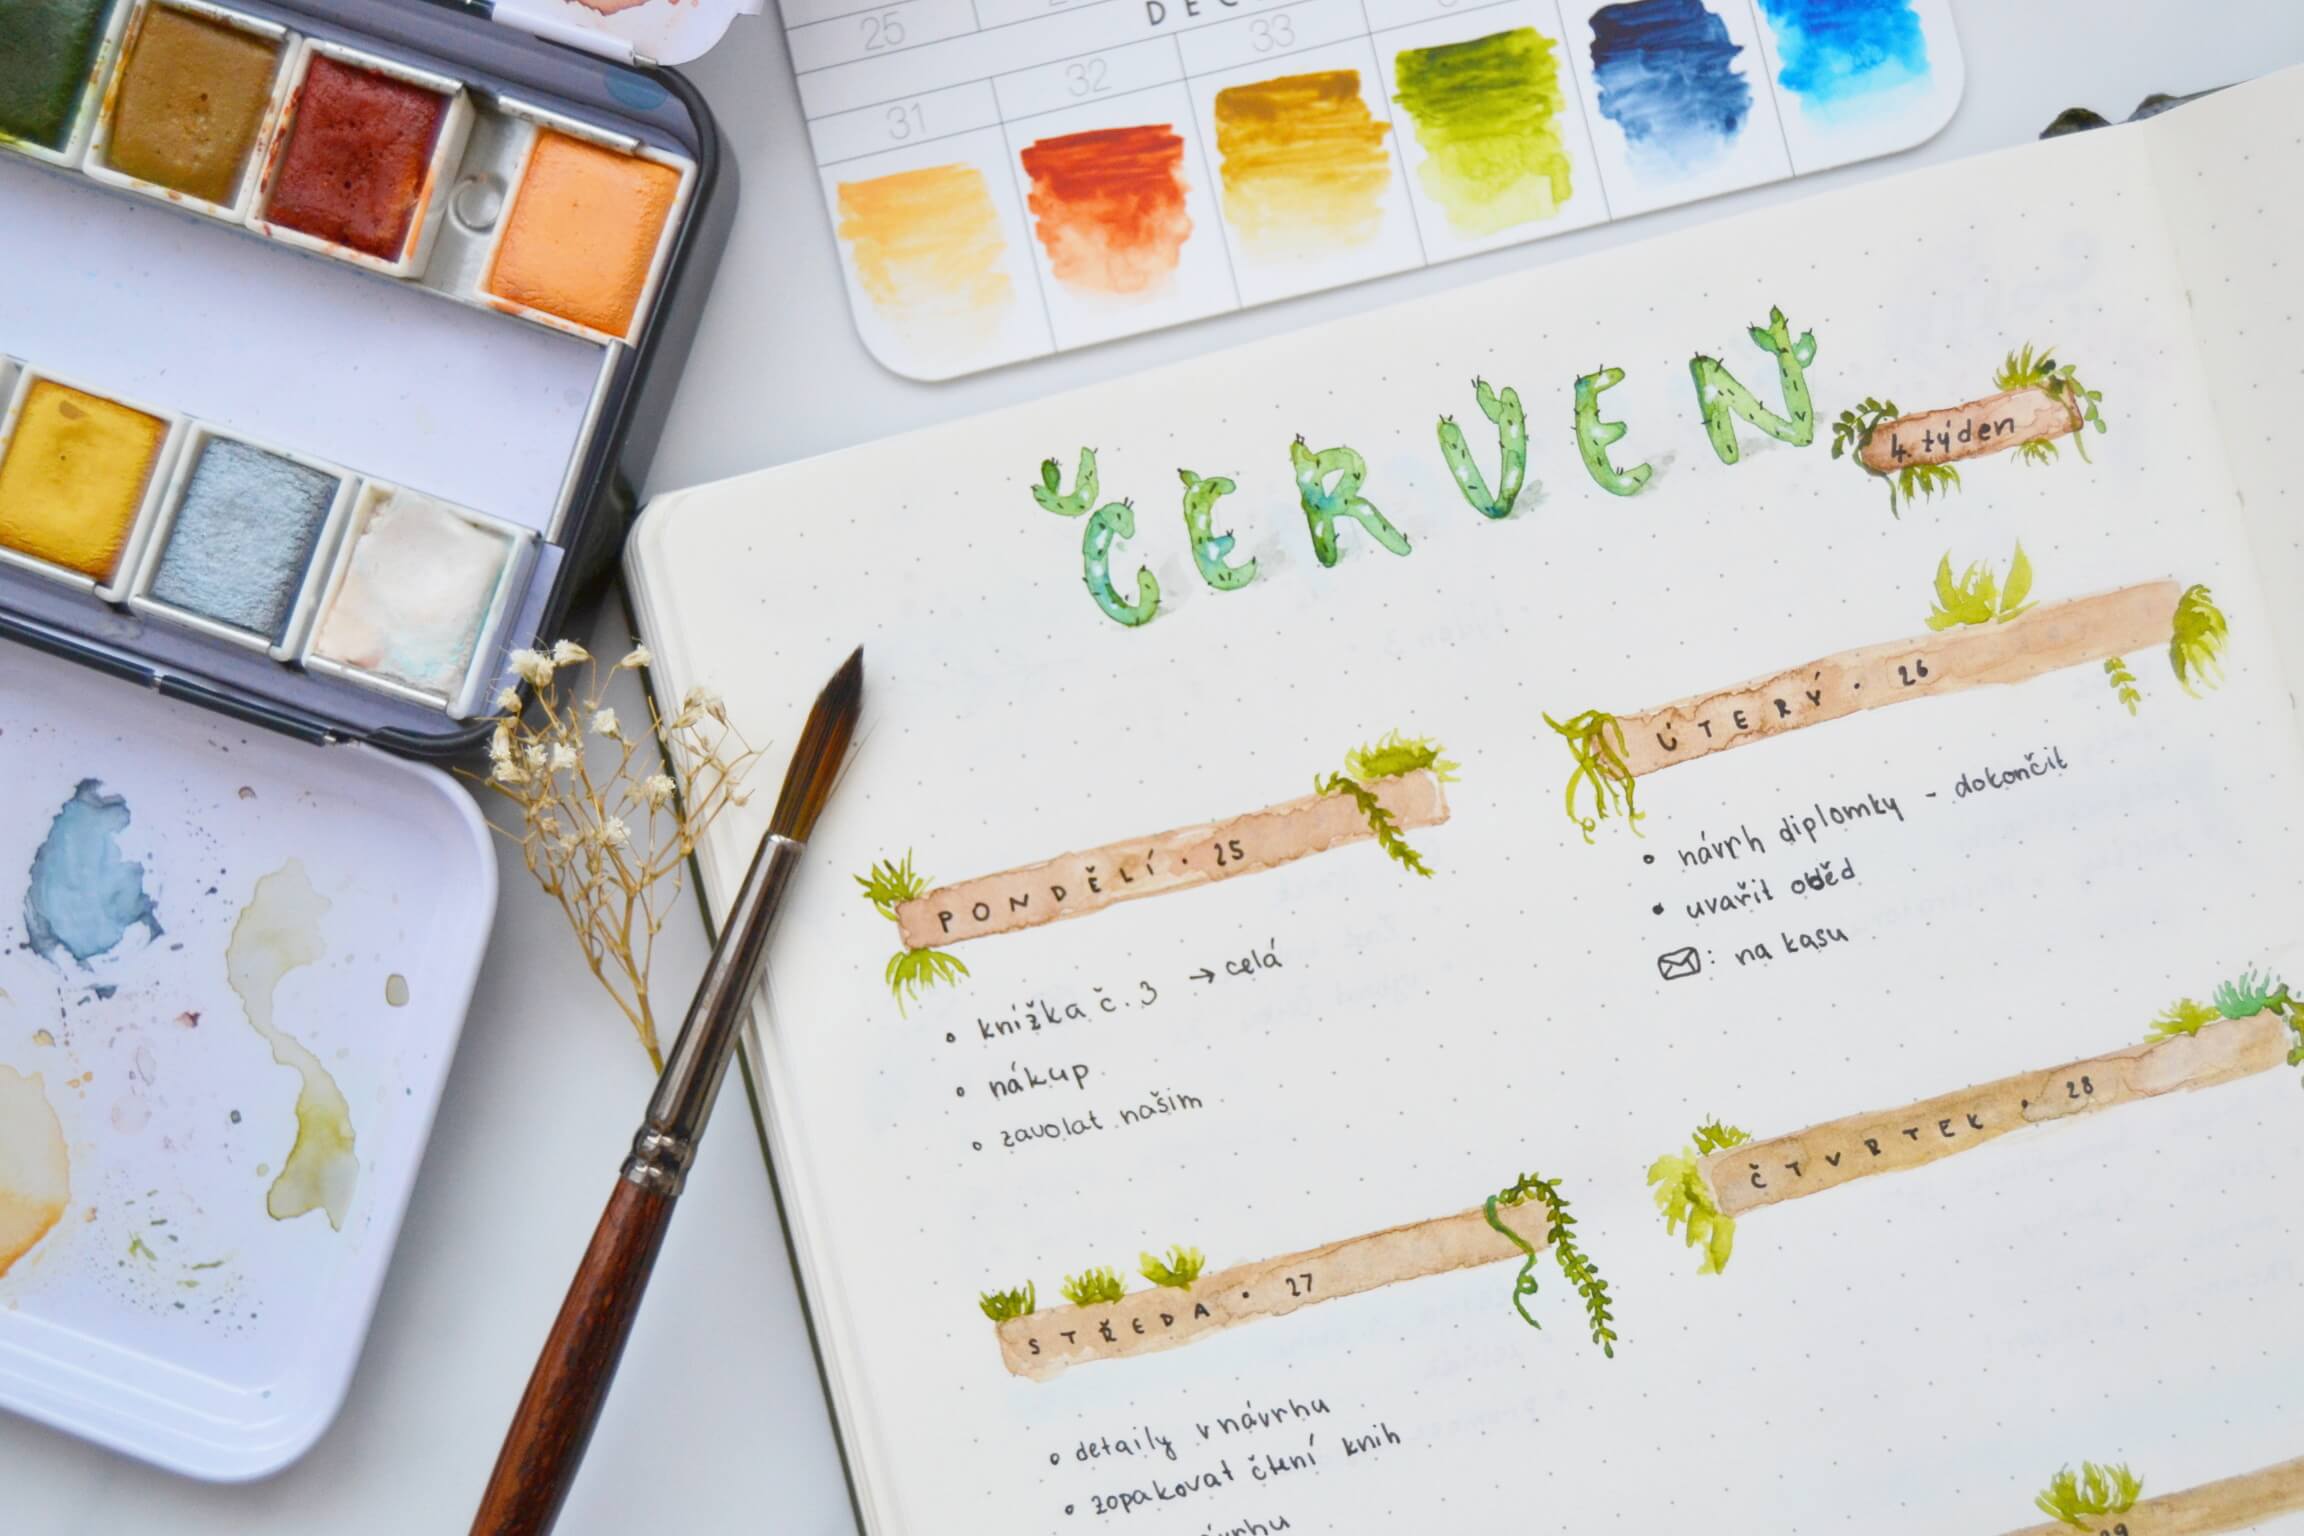 25
DEC
31
32
33
ČERVEN
4. týden
PONDĚLÍ · 25
knížka č. 3 → celá
nákup
zavolat našim
ÚTERÝ · 26
návrh diplomky - dokončit
uvařit oběd
: na kasu
STŘEDA · 27
detaily v návrhu
zopakovat čtení knih
ČTVRTEK · 28
29